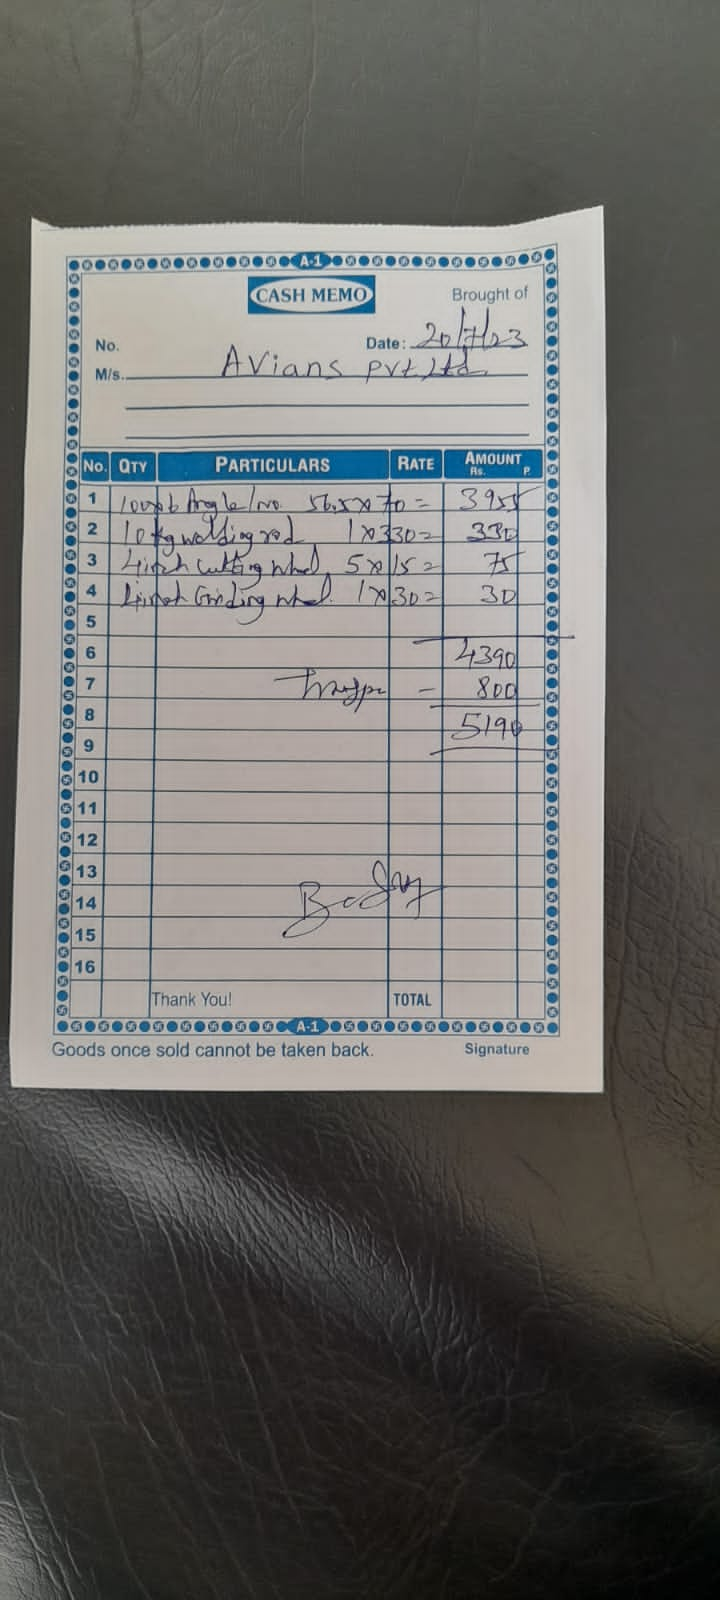 A-1
CASH MEMO
Brought of
No. Date: 20/7/23
M/s. Avians Pvt Ltd
No. QTY PARTICULARS RATE AMOUNT
Rs. P.
1 Angle 1 no. 56.5x70= 3955
2 10 kg welding rod 1x330= 330
3 4 inch cutting wheel 5x15= 75
4 4 inch Grinding wheel. 1x30= 30
5
6 4390
7 - 800
8 5190
9
10
11
12
13
14
15
16
Thank You! TOTAL
A-1
Goods once sold cannot be taken back. Signature